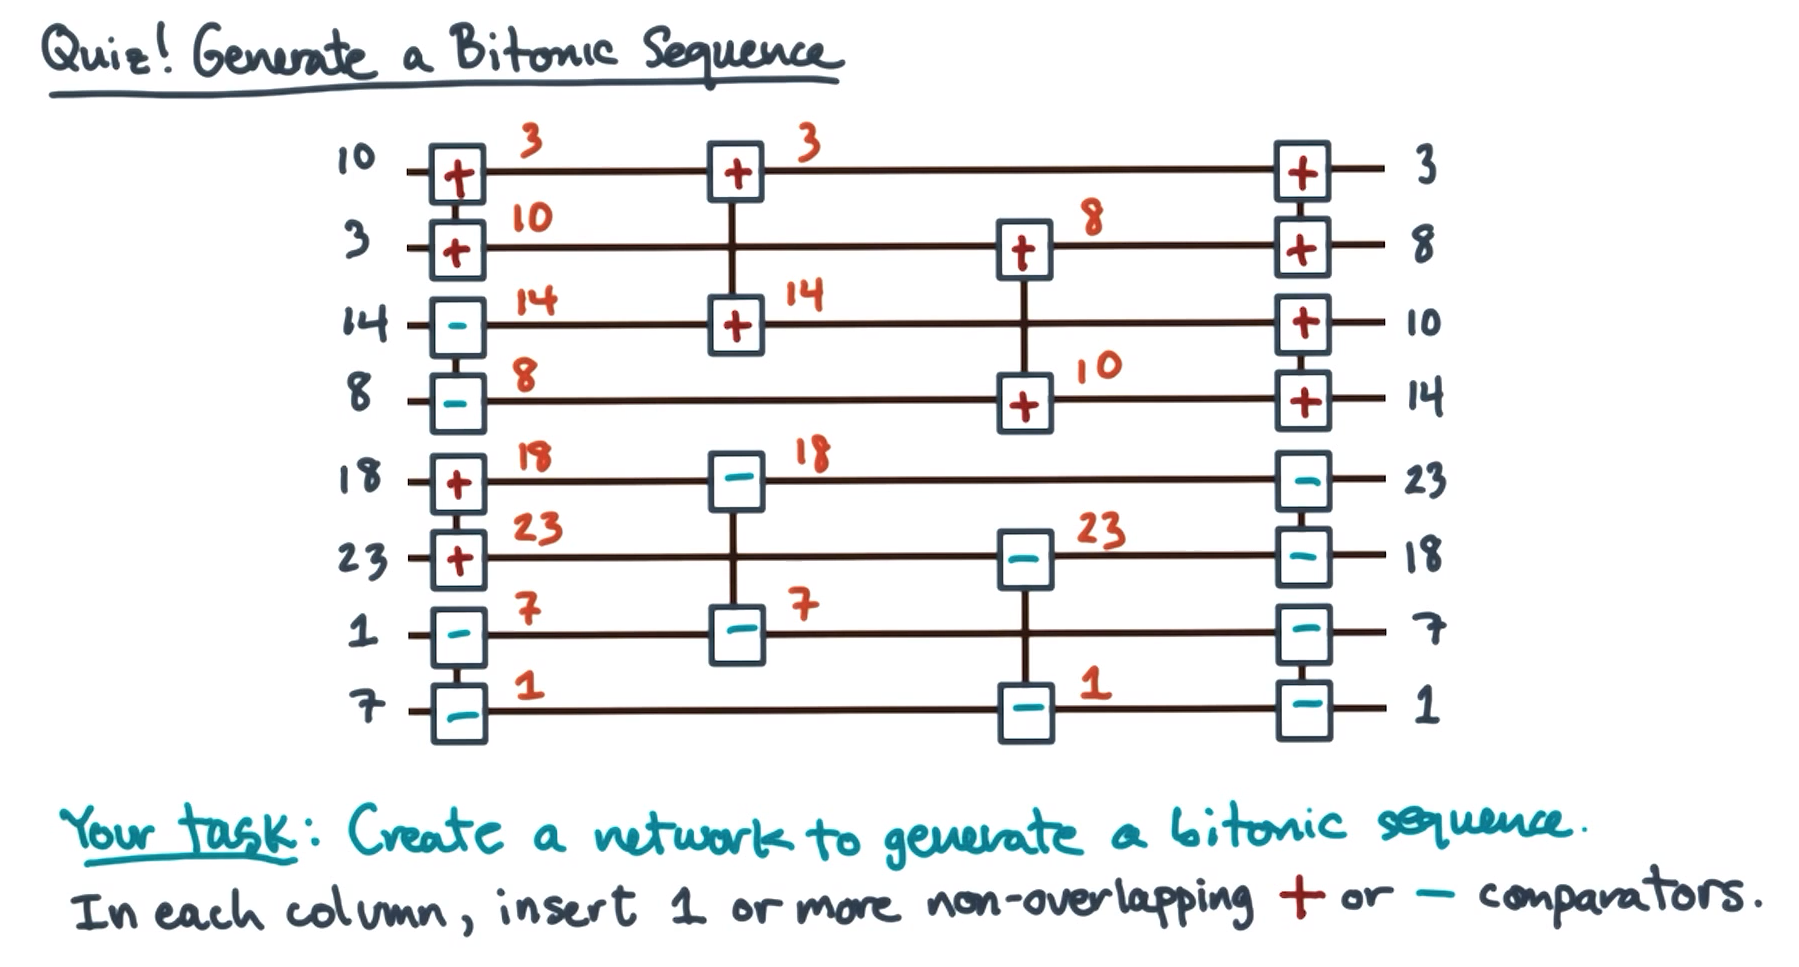 Quiz! Generate a Bitonic Sequence
10 + 3 + 3 + 3
3 + 10 + 8 + 8
14 - 14 + 14 + 10
8 - 8 + 10 + 14
18 + 18 - 18 - 23
23 + 23 - 23 - 18
1 - 7 - 7 - 7
7 - 1 - 1 - 1
Your task: Create a network to generate a bitonic sequence.
In each column, insert 1 or more non-overlapping + or - comparators.